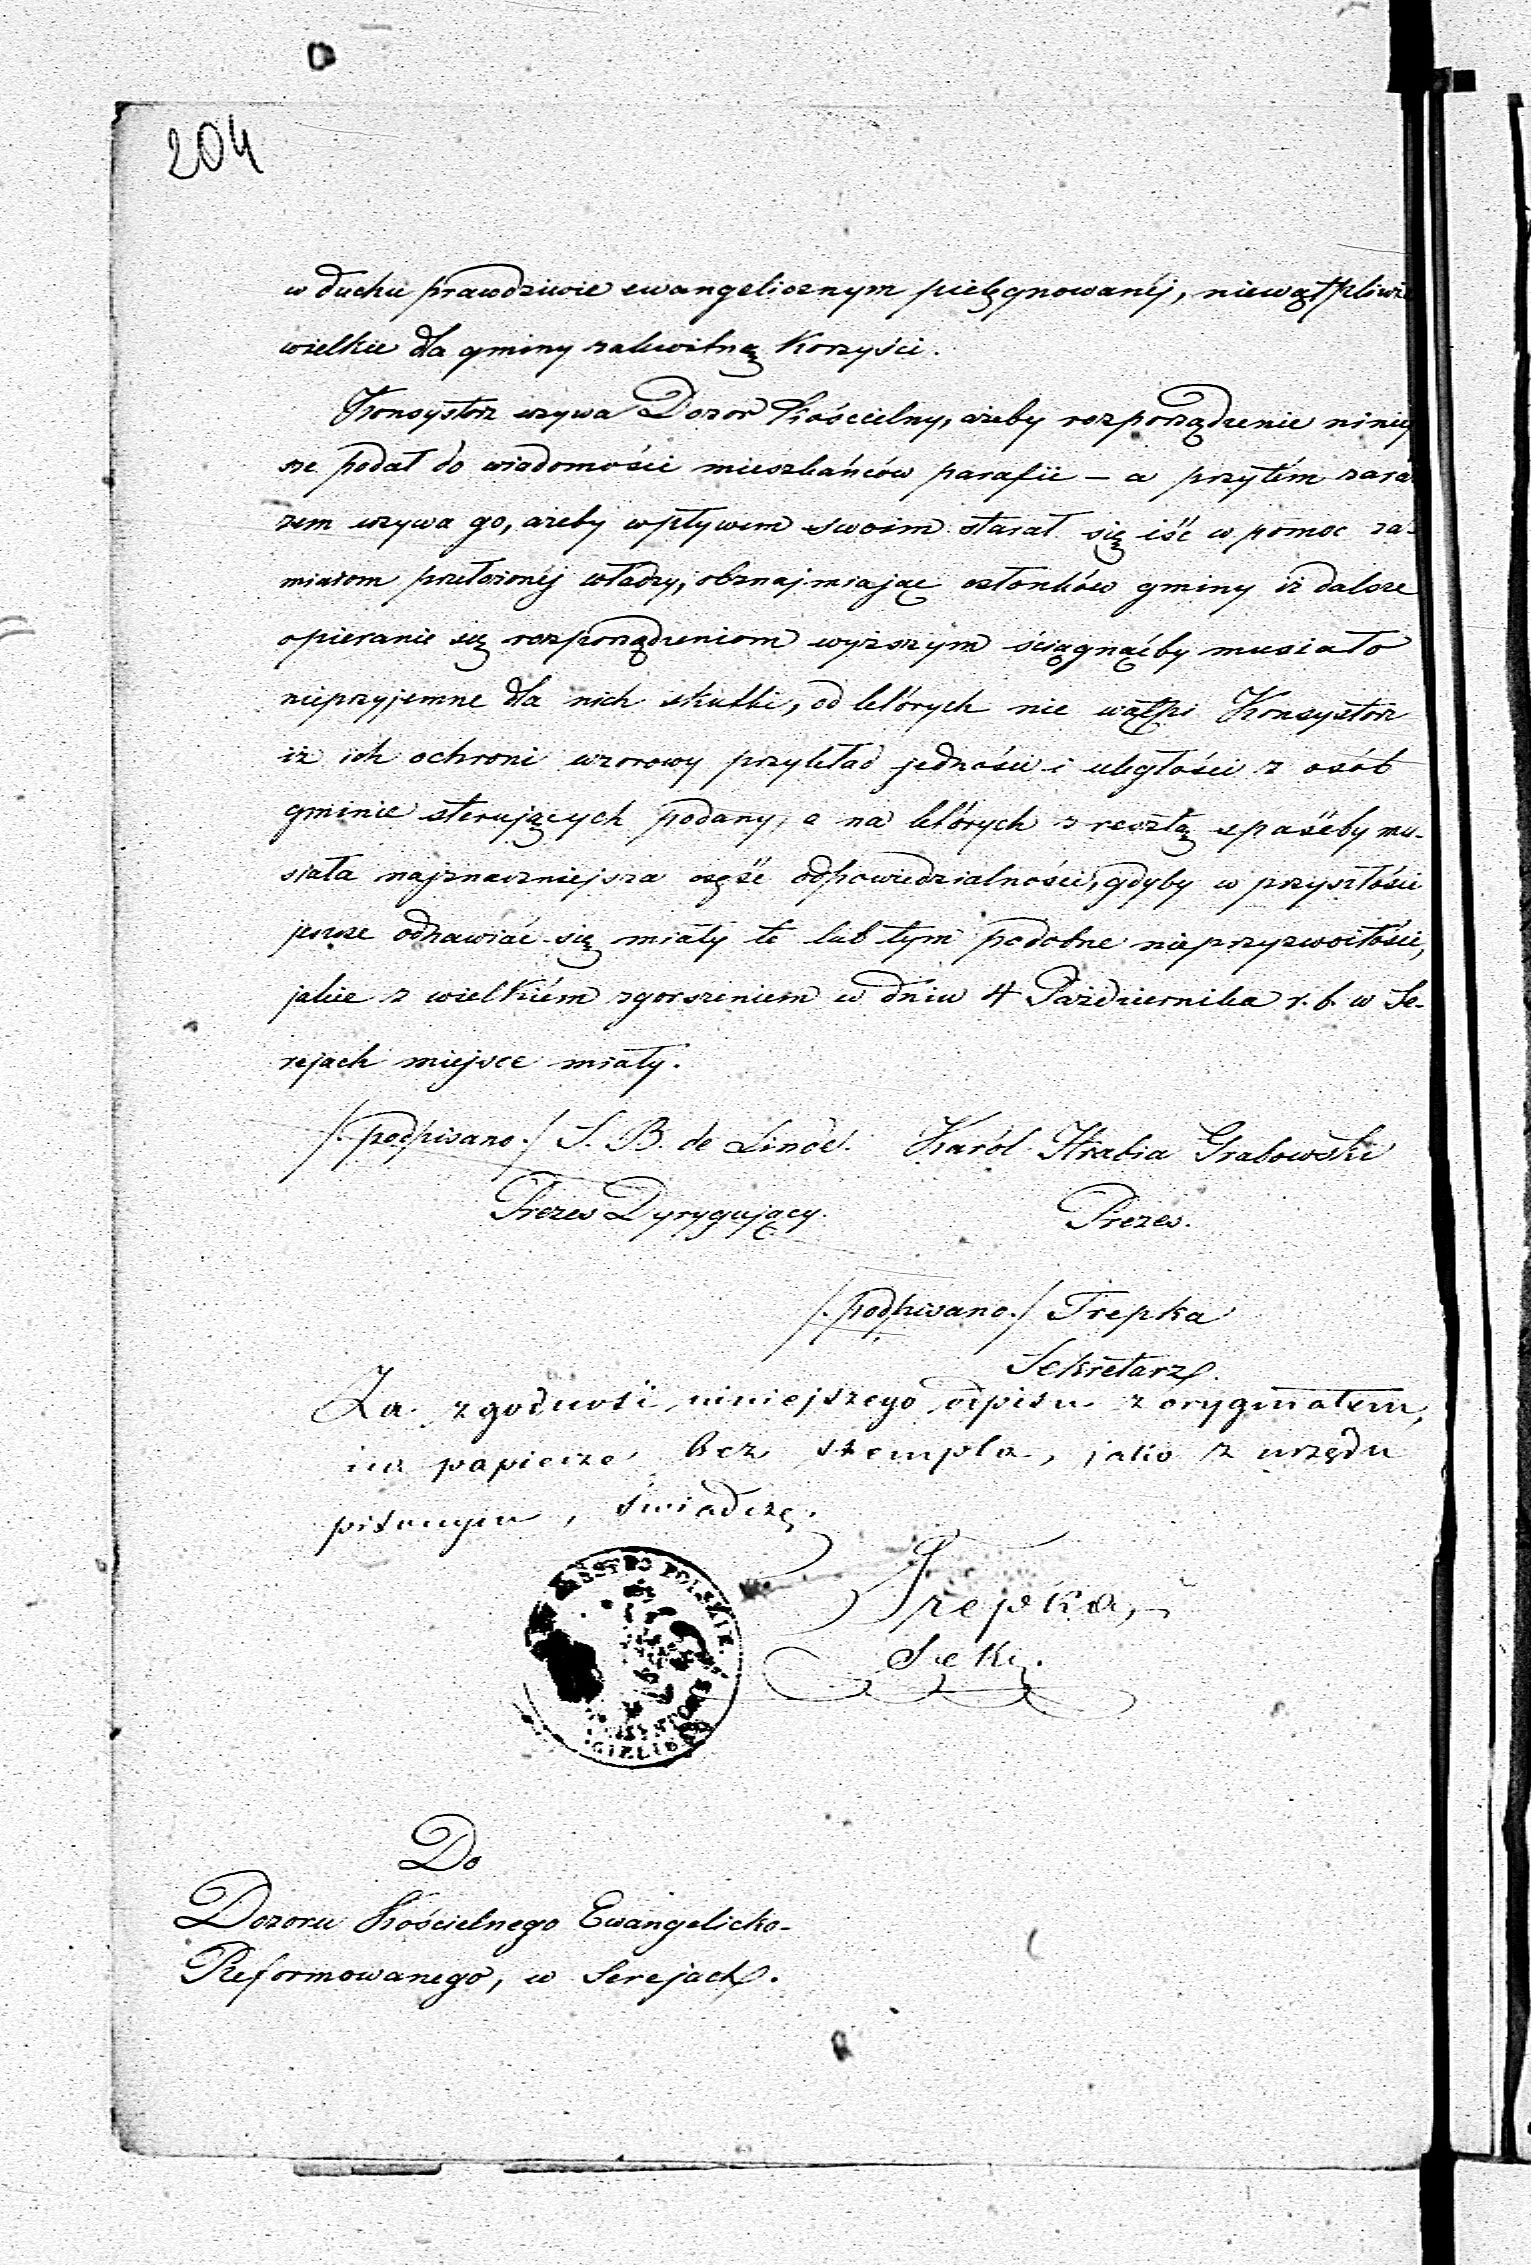 204
w duchu prawdziwie ewangelicznym pielęgnowanéj, niewątpliwie
wielkie dla gminy zakwitną korzyści.
Konsystorz wzywa Dozor Kościelny, ażeby rozporządzenie niniej
sze podał do wiadomości mieszkańców parafii – a przytém zara
zem wzywa go, ażeby wpływem swoim starał się iść w pomoc za-
miarom przełożonéj władzy, obznajmiając członków gminy iż dalsze
opieranie się rozporządzeniom wyższym ściągnąćby musiało
nieprzyjemne dla nich skutki, od których nie wątpi Konsystorz
iż ich ochroni wzorowy przykład jedności i uległości z osób
gminie sterujących podany, a na których zresztą spaśćby mu-
siała najznaczniejsza część odpowiedzialności, gdyby w przyszłości
jeszcze odnawiać się miały te lub tym podobne nieprzyzwoitości,
jakie z wielkiém zgorszeniem w dniu 4 Października r. b. w Se-
rejach miejsce miały.
/. podpisano ./ S. B. de Linde. Karól Hrabia Grabowski
Prezes Dyrygujący. Prezes.
/. podpisano ./ Trepka
Sekretarz.
Za zgodność niniejszego odpisu z oryginałem,
na papierze bez stempla, jako z urzędu
pisanym, świadczę.
Trepka,
Sekr.
POLSKIE
Do
Dozoru Kościelnego Ewangelicko-
Reformowanego, w Serejach.